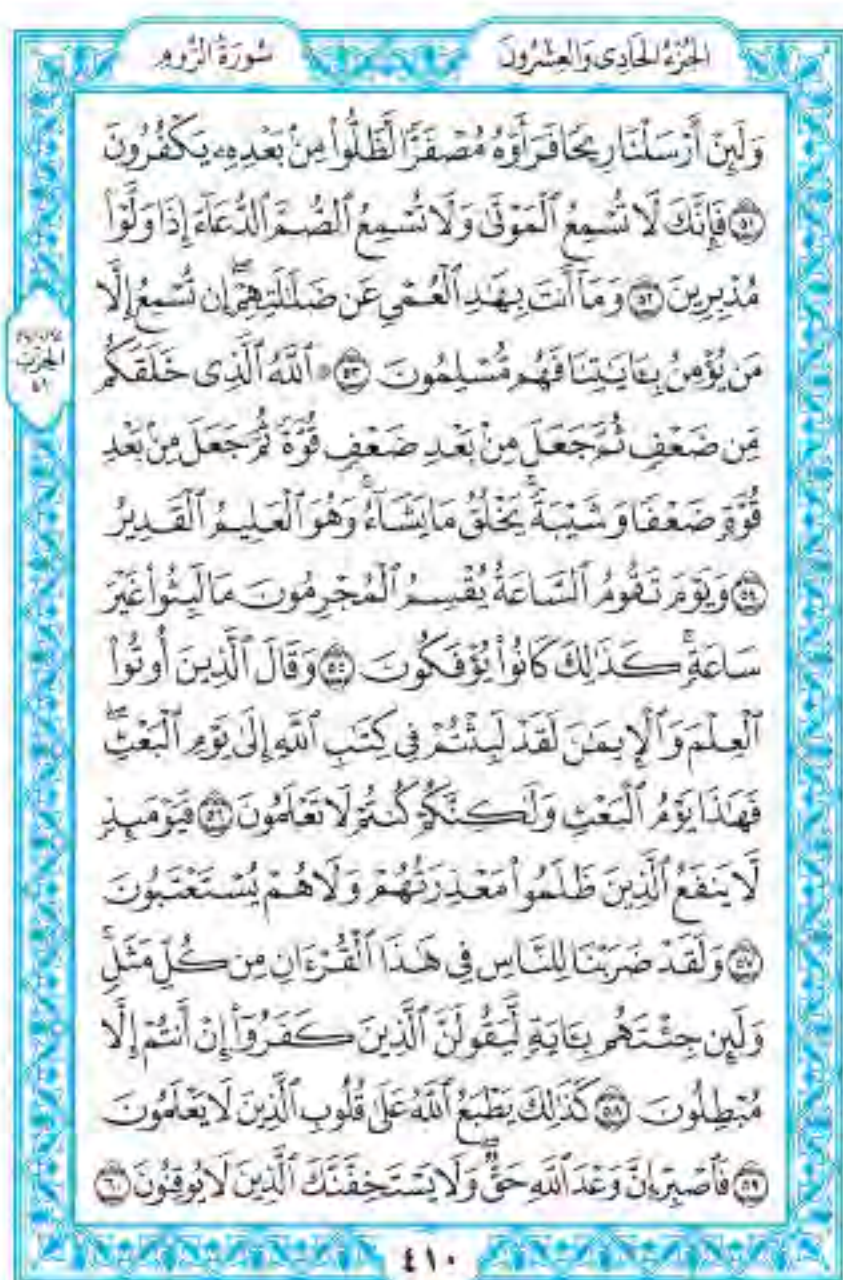 سُورَةُ الرُّومِ
الجُزْءُ الحَادِي وَالعِشْرُونَ
وَلَئِنْ أَرْسَلْنَا رِيحًا فَرَأَوْهُ مُصْفَرًّا لَّظَلُّوا۟ مِنۢ بَعْدِهِۦ يَكْفُرُونَ
۝٥١ فَإِنَّكَ لَا تُسْمِعُ ٱلْمَوْتَىٰ وَلَا تُسْمِعُ ٱلصُّمَّ ٱلدُّعَآءَ إِذَا وَلَّوْا۟
مُدْبِرِينَ ۝٥٢ وَمَآ أَنتَ بِهَٰدِ ٱلْعُمْىِ عَن ضَلَٰلَتِهِمْ ۖ إِن تُسْمِعُ إِلَّا
مَن يُؤْمِنُ بِـَٔايَٰتِنَا فَهُم مُّسْلِمُونَ ۝٥٣ ۞ ٱللَّهُ ٱلَّذِى خَلَقَكُم
مِّن ضَعْفٍ ثُمَّ جَعَلَ مِنۢ بَعْدِ ضَعْفٍ قُوَّةً ثُمَّ جَعَلَ مِنۢ بَعْدِ
قُوَّةٍ ضَعْفًا وَشَيْبَةً ۚ يَخْلُقُ مَا يَشَآءُ ۖ وَهُوَ ٱلْعَلِيمُ ٱلْقَدِيرُ
۝٥٤ وَيَوْمَ تَقُومُ ٱلسَّاعَةُ يُقْسِمُ ٱلْمُجْرِمُونَ مَا لَبِثُوا۟ غَيْرَ
سَاعَةٍ ۚ كَذَٰلِكَ كَانُوا۟ يُؤْفَكُونَ ۝٥٥ وَقَالَ ٱلَّذِينَ أُوتُوا۟
ٱلْعِلْمَ وَٱلْإِيمَٰنَ لَقَدْ لَبِثْتُمْ فِى كِتَٰبِ ٱللَّهِ إِلَىٰ يَوْمِ ٱلْبَعْثِ ۖ
فَهَٰذَا يَوْمُ ٱلْبَعْثِ وَلَٰكِنَّكُمْ كُنتُمْ لَا تَعْلَمُونَ ۝٥٦ فَيَوْمَئِذٍ
لَّا يَنفَعُ ٱلَّذِينَ ظَلَمُوا۟ مَعْذِرَتُهُمْ وَلَا هُمْ يُسْتَعْتَبُونَ
۝٥٧ وَلَقَدْ ضَرَبْنَا لِلنَّاسِ فِى هَٰذَا ٱلْقُرْءَانِ مِن كُلِّ مَثَلٍ ۚ
وَلَئِن جِئْتَهُم بِـَٔايَةٍ لَّيَقُولَنَّ ٱلَّذِينَ كَفَرُوٓا۟ إِنْ أَنتُمْ إِلَّا
مُبْطِلُونَ ۝٥٨ كَذَٰلِكَ يَطْبَعُ ٱللَّهُ عَلَىٰ قُلُوبِ ٱلَّذِينَ لَا يَعْلَمُونَ
۝٥٩ فَٱصْبِرْ إِنَّ وَعْدَ ٱللَّهِ حَقٌّ ۖ وَلَا يَسْتَخِفَّنَّكَ ٱلَّذِينَ لَا يُوقِنُونَ ۝٦٠
الحِزْبُ
٤١
٤١٠